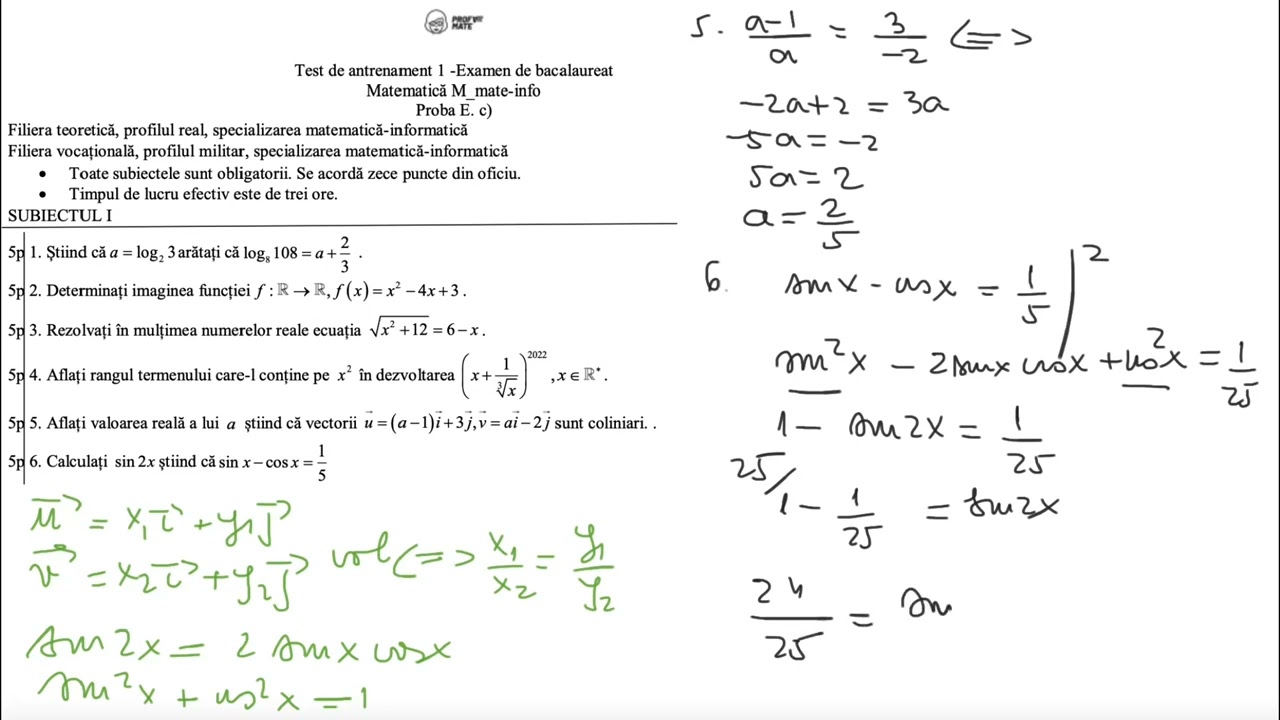 PROFU' MATE
Test de antrenament 1 -Examen de bacalaureat
Matematică M_mate-info
Proba E. c)
Filiera teoretică, profilul real, specializarea matematică-informatică
Filiera vocațională, profilul militar, specializarea matematică-informatică
• Toate subiectele sunt obligatorii. Se acordă zece puncte din oficiu.
• Timpul de lucru efectiv este de trei ore.
SUBIECTUL I
5p 1. Știind că a = log₂ 3 arătați că log₈ 108 = a + 2/3 .
5p 2. Determinați imaginea funcției f : ℝ → ℝ, f(x) = x² − 4x + 3 .
5p 3. Rezolvați în mulțimea numerelor reale ecuația √(x² + 12) = 6 − x .
5p 4. Aflați rangul termenului care-l conține pe x² în dezvoltarea (x + 1/∛x)²⁰²² , x ∈ ℝ* .
5p 5. Aflați valoarea reală a lui a știind că vectorii u⃗ = (a − 1)i⃗ + 3j⃗, v⃗ = ai⃗ − 2j⃗ sunt coliniari. .
5p 6. Calculați sin 2x știind că sin x − cos x = 1/5
u⃗ = x₁i⃗ + y₁j⃗
v⃗ = x₂i⃗ + y₂j⃗
col <=> x₁/x₂ = y₁/y₂
sin 2x = 2 sin x cos x
sin²x + cos²x = 1
5. (a−1)/a = 3/−2 <=>
−2a + 2 = 3a
−5a = −2
5a = 2
a = 2/5
6. sin x − cos x = 1/5 |²
sin²x − 2 sin x cos x + cos²x = 1/25
1 − sin 2x = 1/25
25/ 1 − 1/25 = sin 2x
24/25 = sin